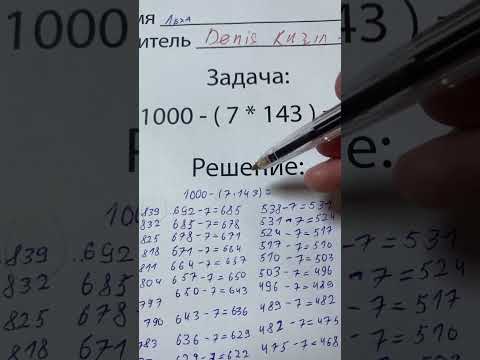 мя Лёха
итель Denis Kuzin
Задача:
1000 - ( 7 * 143 )
Решение:
1000-(7·143)=
839 .692-7=685 538-7=531
832 685-7=678 531-7=524
825 678-7=671 524-7=517
818 671-7=664 517-7=510
811 664-7=657 510-7=503
804 657-7=650 503-7=496
797 650-7=643 496-7=489
790 643-7=636 489-7=482
783 636-7=629 482-7=475
629-7=622 475-7=468